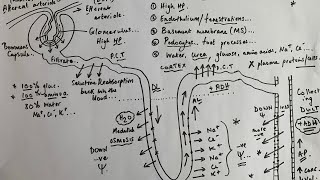 Afferent arteriole.
Efferent
arteriole.
Glomerulus.
High HP
Bowman's
Capsule.
Filtrate
P.C.T
① High HP.
② Endothelium/fenestrations...
③ Basement membrane (MS)...
④ Podocytes... foot processes...
⑤ Water, Urea, glucose, amino acids, Na⁺, Cl⁻...
CORTEX
D.C.T
X plasma proteins/
Selective Reabsorption
back into the
blood
* 100% gluc.
* 100%
80% water
Na⁺, Cl⁻, K⁺...
DL
AL
+ ADH
H₂O
Medulla
OSMOSIS
DOWN
-ve
Ψ
Na⁺
Cl⁻
K⁺
Na⁺
Cl⁻
K⁺
DOWN
more
-ve
Ψ
Collecting
DUCT
+ADH
HP